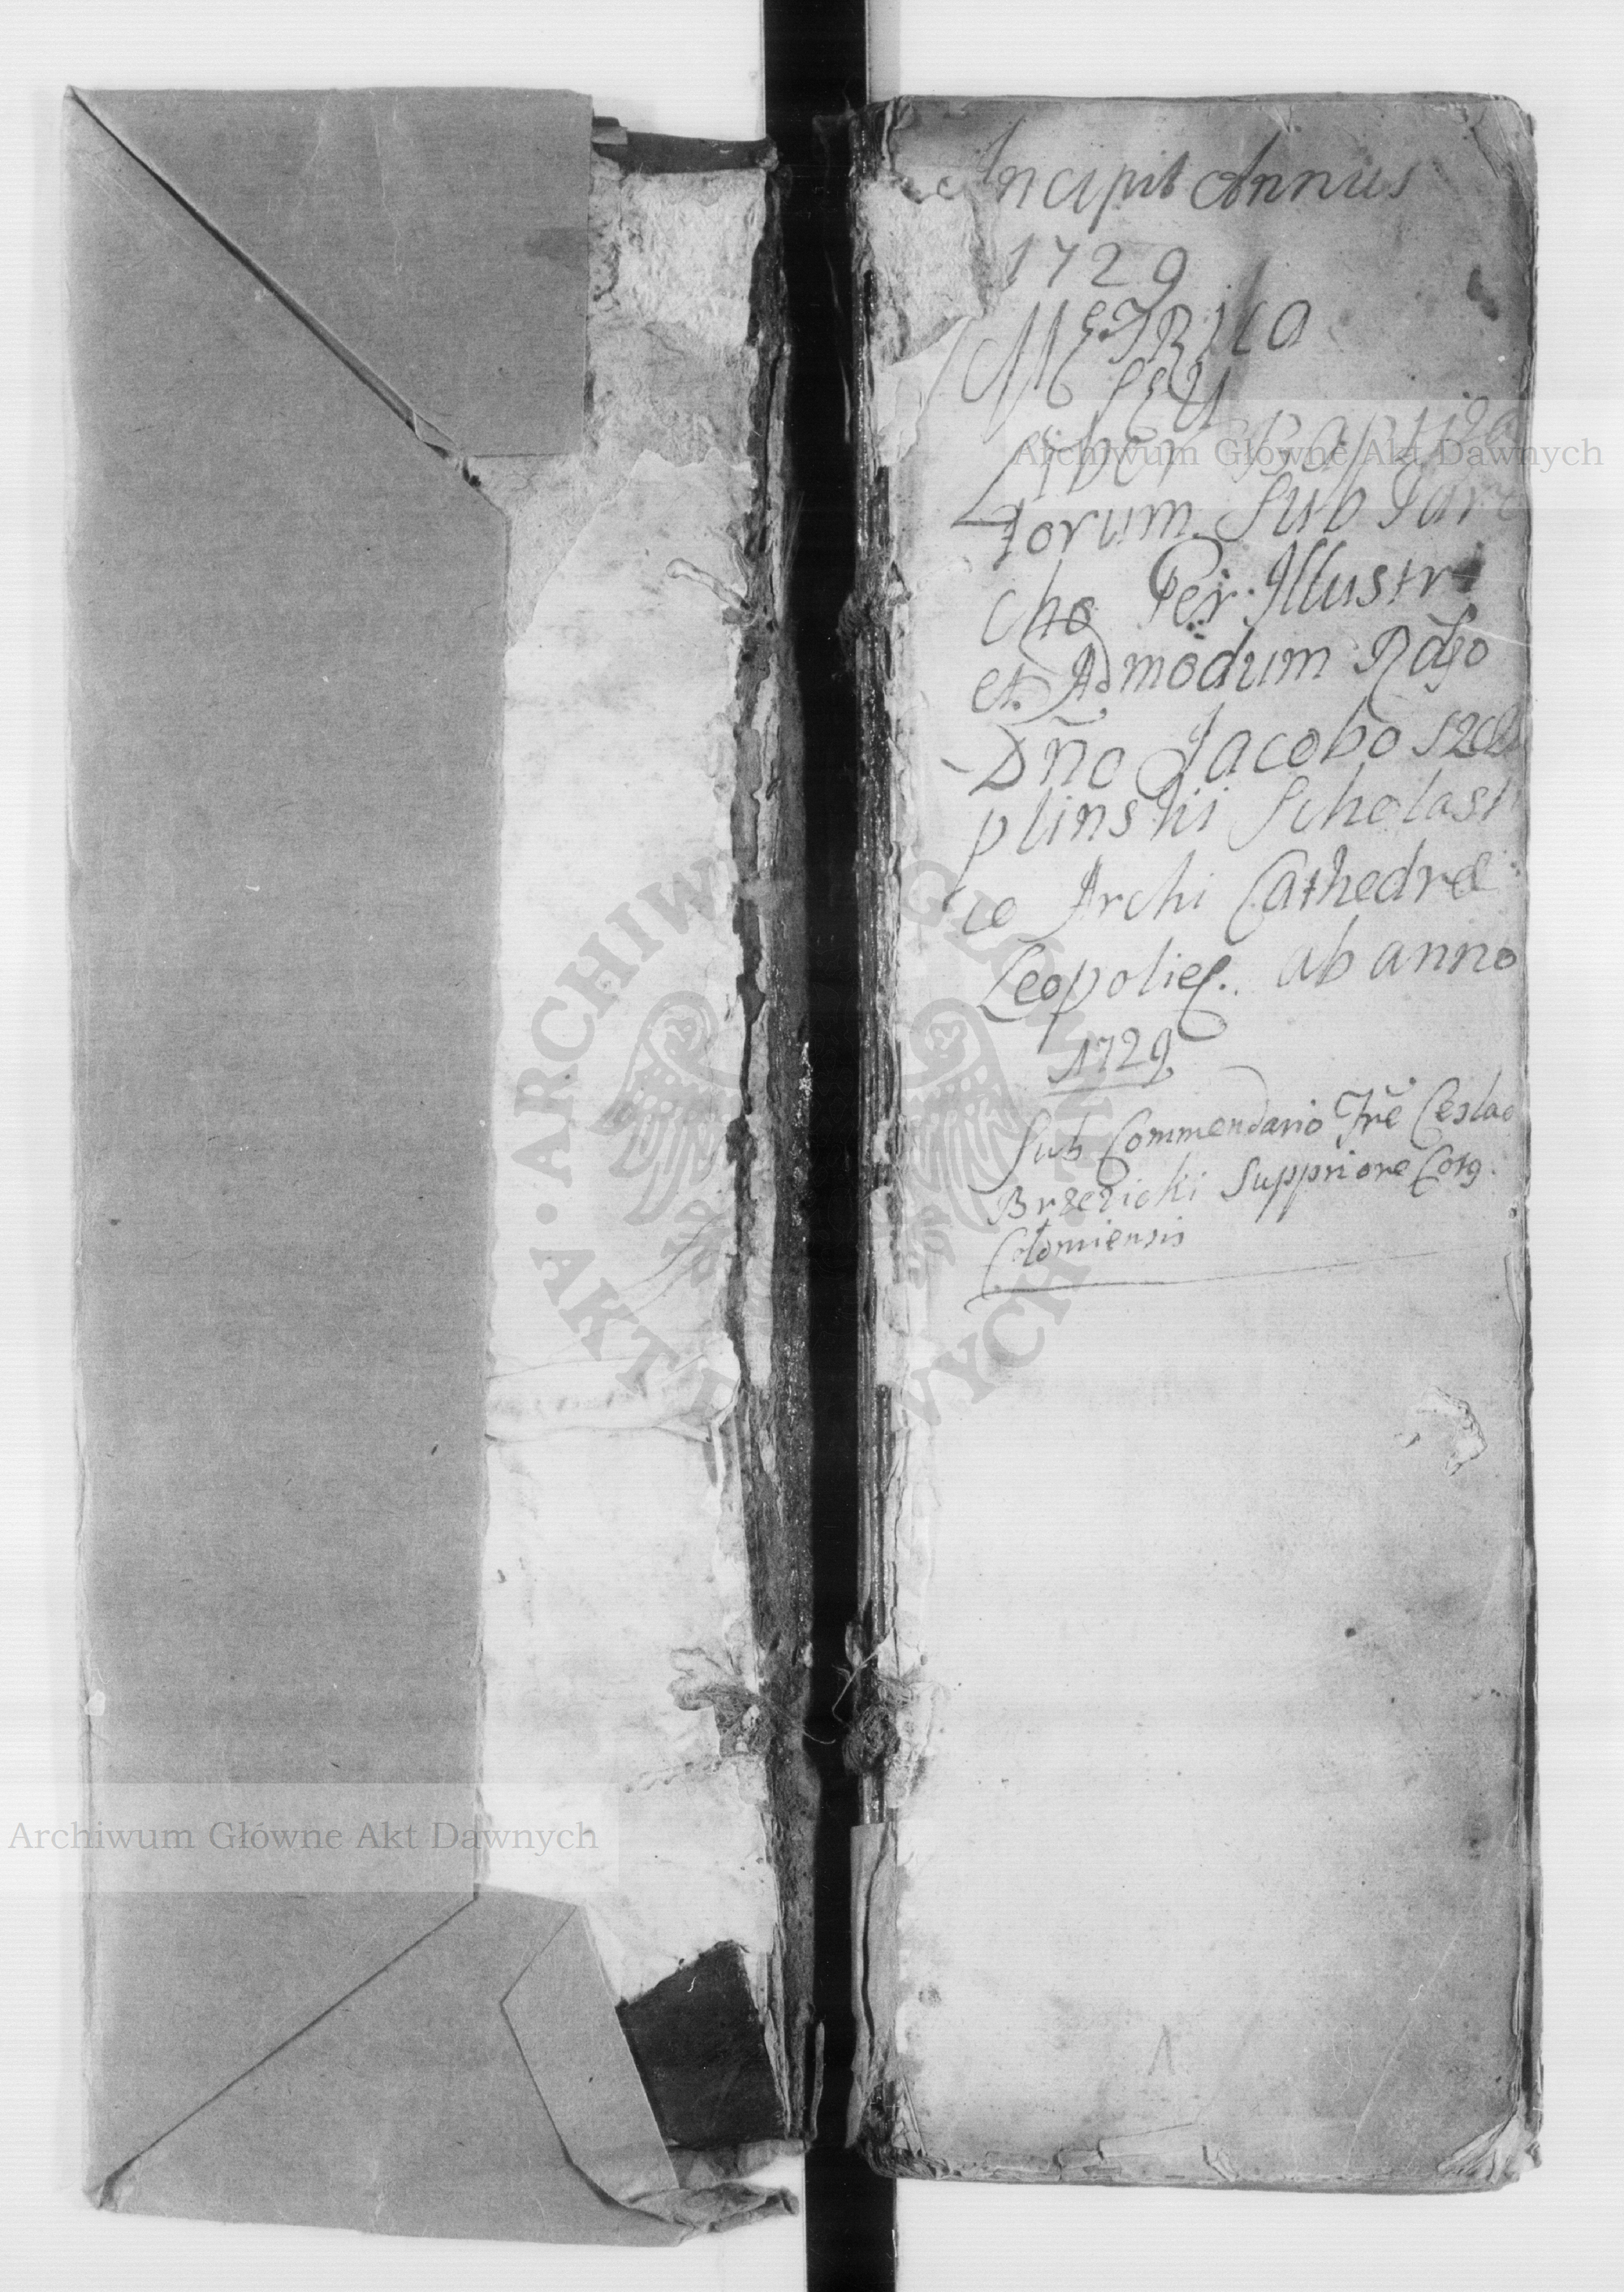 Incipit Annus
1729
METRICA
SEU
Liber Baptiza
torum Sub Paro
cho Per Illustri
et Admodum Rdo
Dño Jacobo
plinski Scholasti
co Archi Cathedræ
Leopolień. ab anno
1729
Sub Commendario Fre Ceslao
Brzezicki Suppriore
Colomiensis
1
Archiwum Główne Akt Dawnych
Archiwum Główne Akt Dawnych